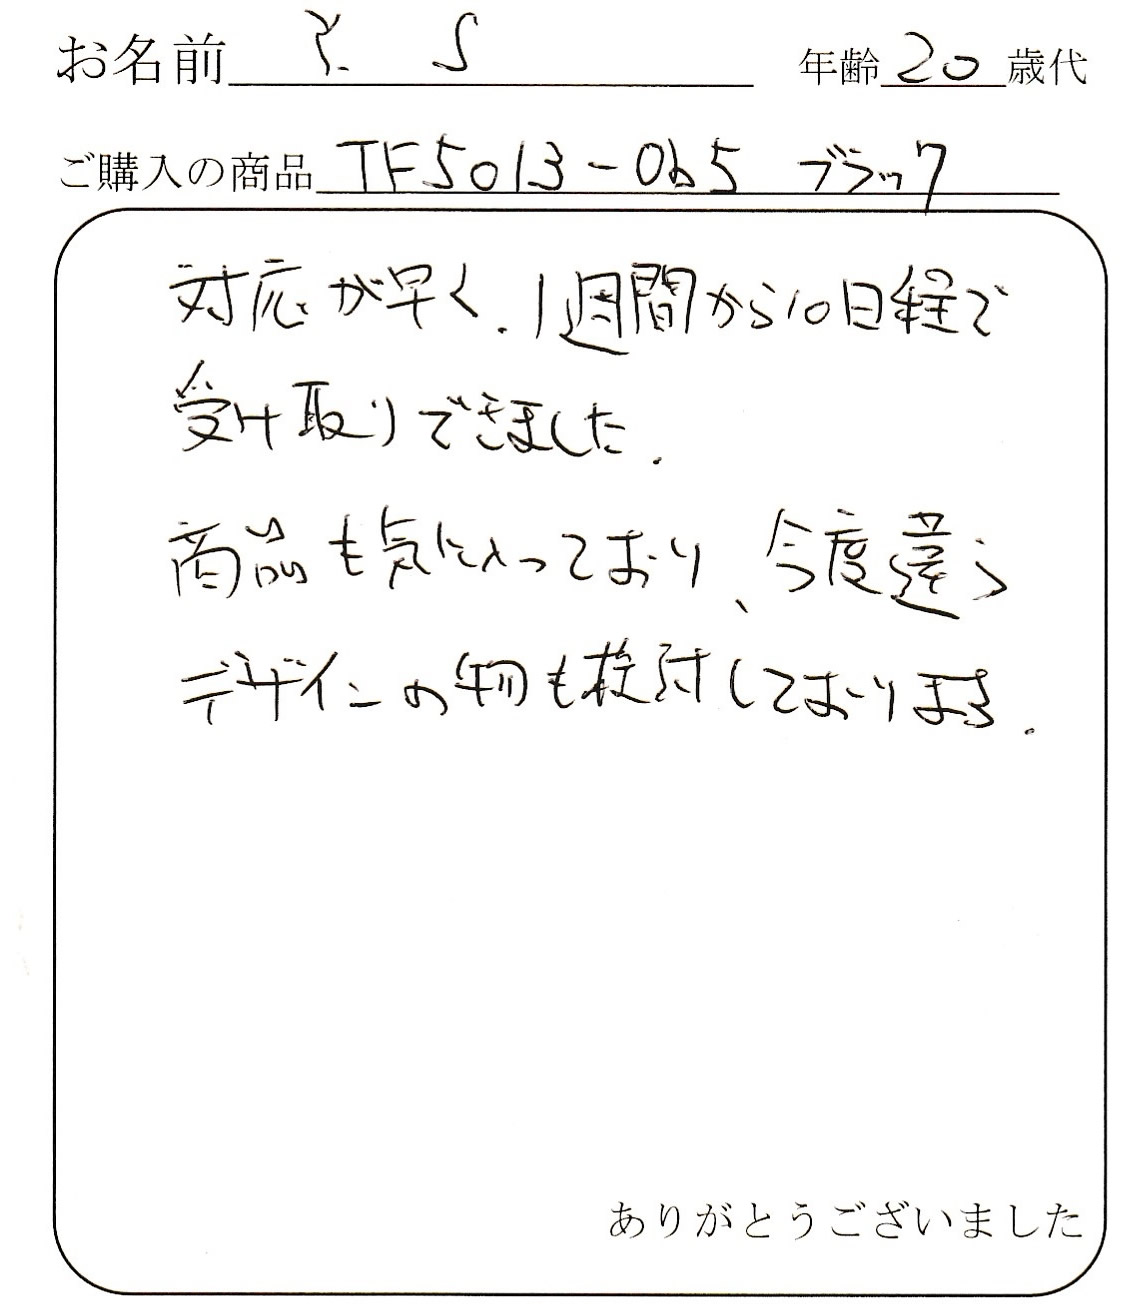 お名前 Y. S 年齢 20 歳代
ご購入の商品 TF5013-065 ブラック
対応が早く、1週間から10日程で
受け取りできました.
商品も気に入っており、今度違う
デザインの物も検討しております.
ありがとうございました